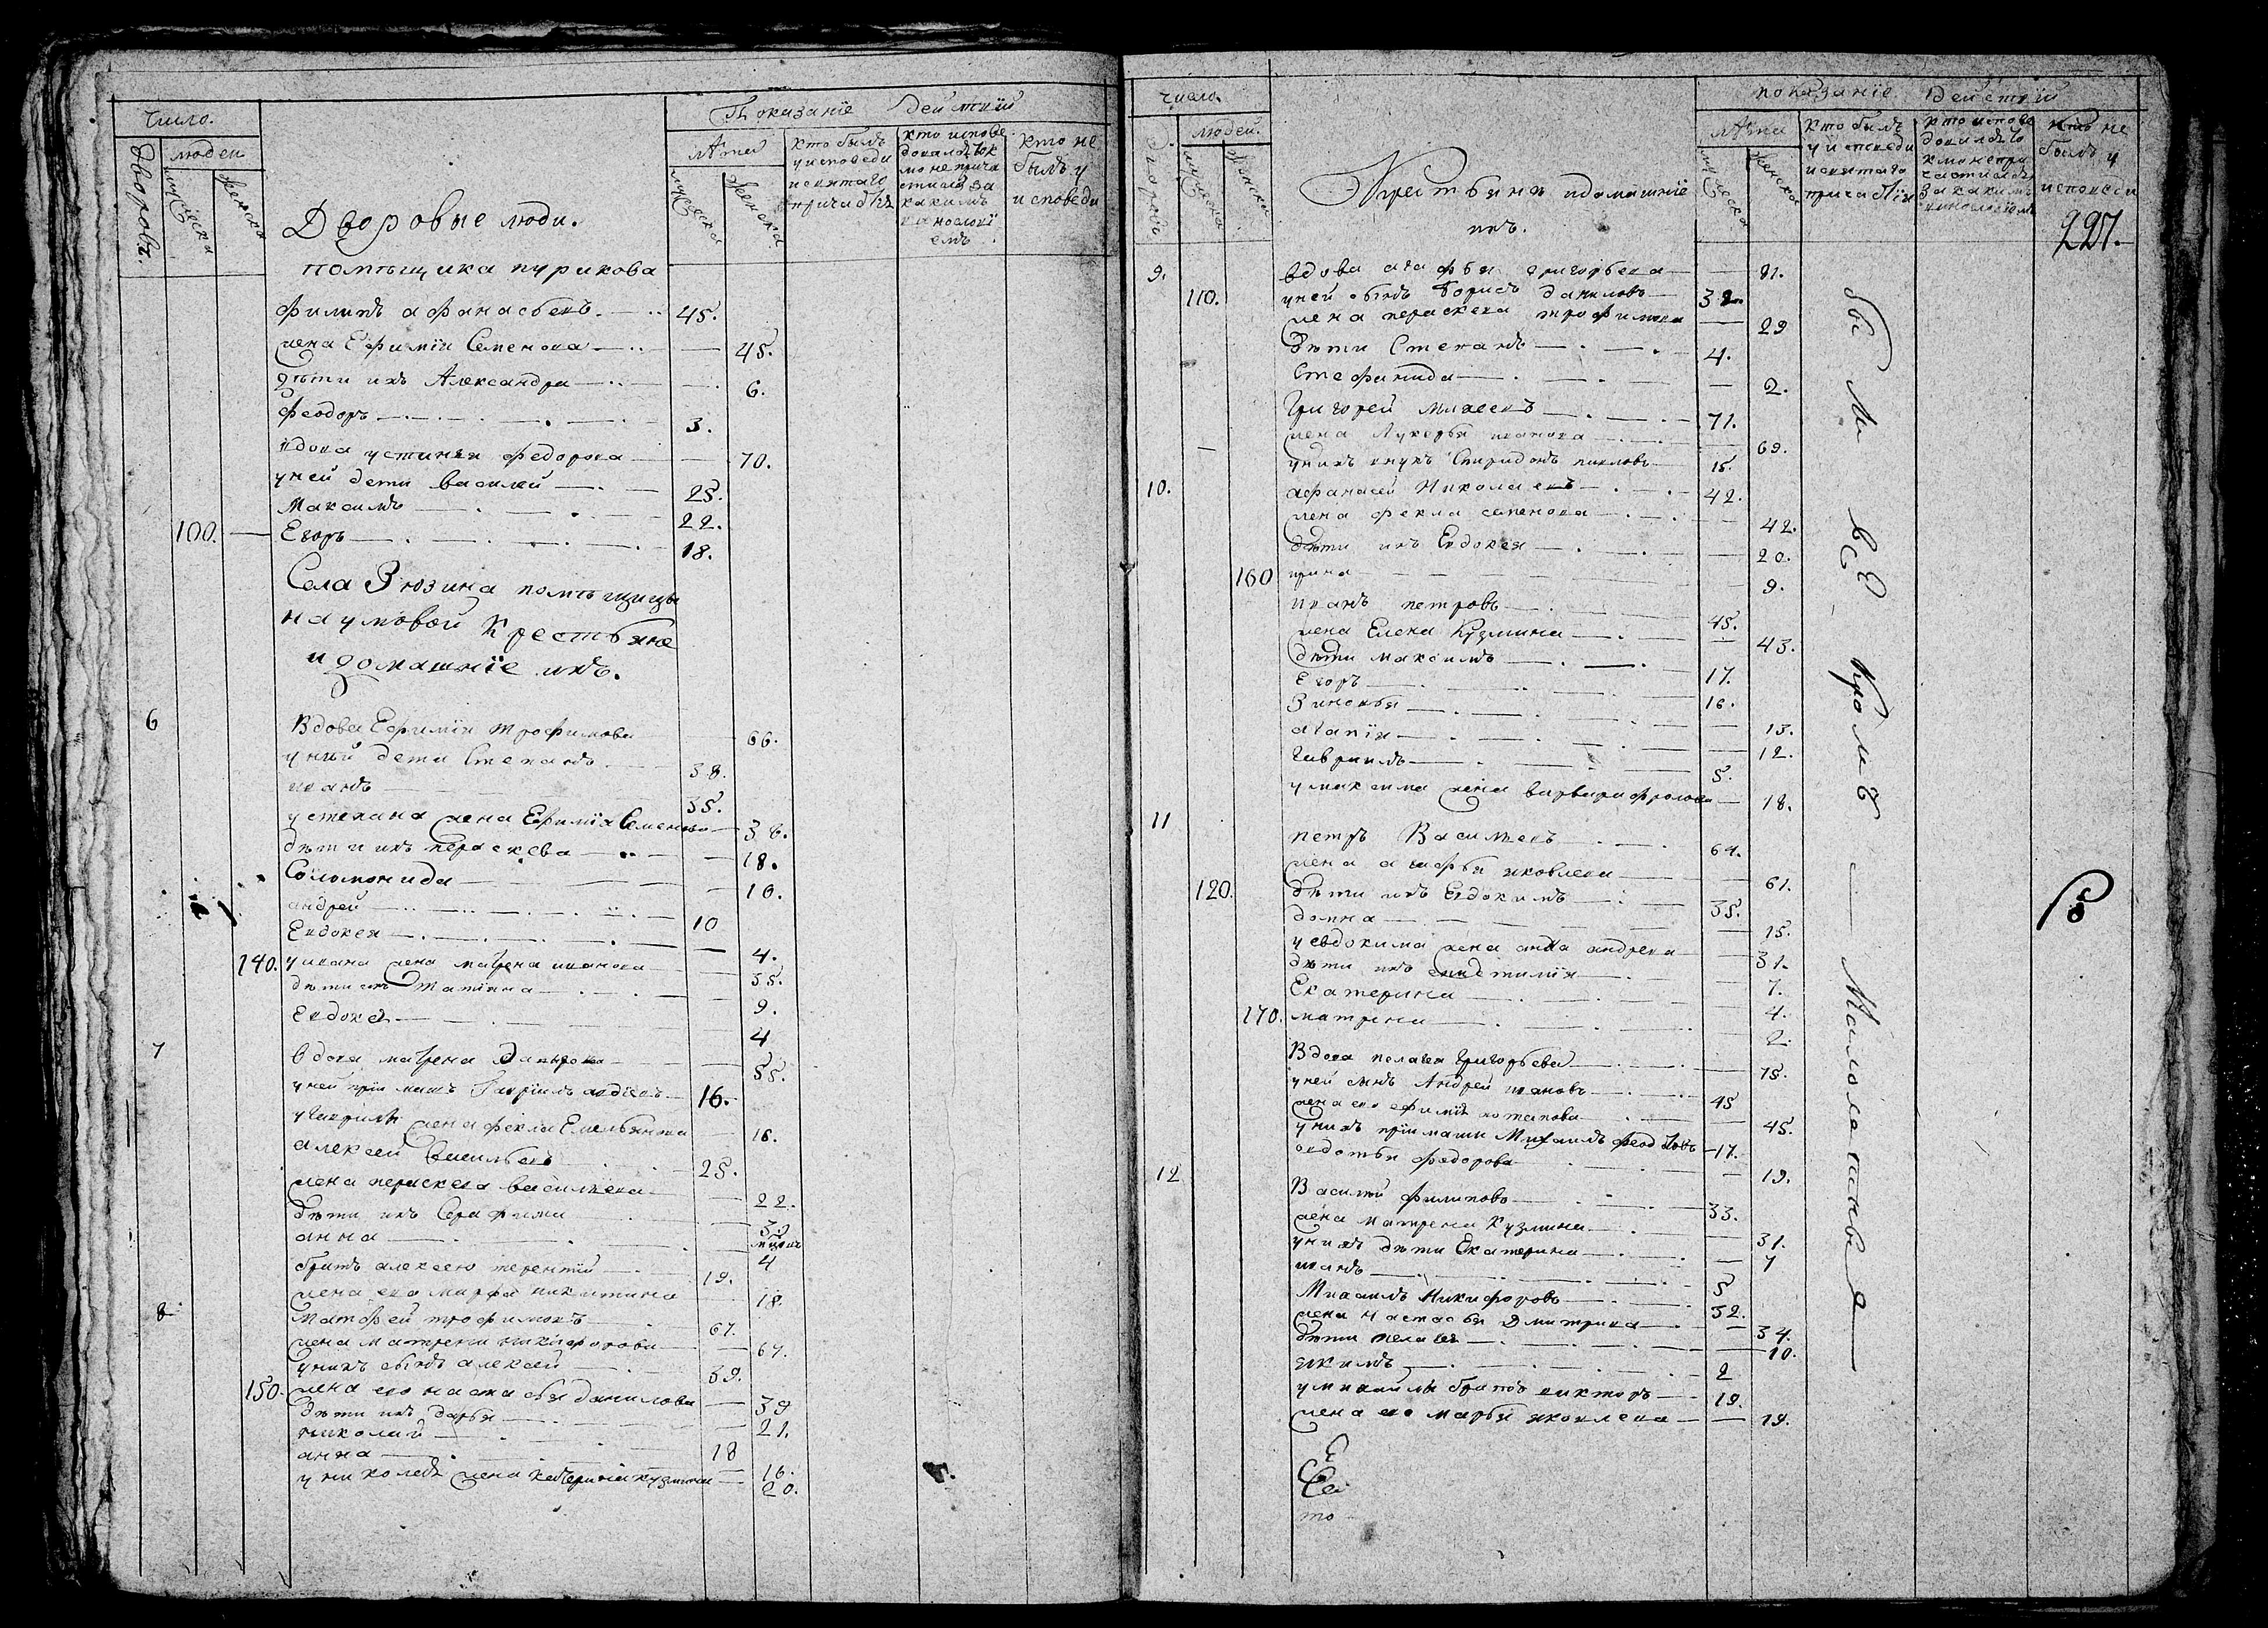 Число.
Дворовъ.
людей
мужеска
женска
Показаніе Действій
лѣта
мужеска
женска
кто былъ
у исповеди
и святаго
причастія
кто испове
довался ток
мо не прича
стился за
какимъ
винословї
емъ
кто не
былъ у
исповеди
Дворовые люди.
помѣщика пурикова
Филипъ афанасьевъ. 45.
жена Ефимія Семенова 45.
дѣти ихъ Александра 6.
феодоръ 3.
вдова устинья федорова 70.
у ней дети василей 25.
Максимъ 22.
100. Егоръ 18.
Села Зюзина помѣщицы
наумовой крестьяне
и домашніе ихъ.
6 Вдова Ефимія трофимова 66.
у ней дети Степанъ 38.
иванъ 35.
у степана жена Ефимія Семенова 38.
дѣти ихъ параскева 18.
Соломонида 10.
андрей 10
Евдокея 4.
140. у ивана жена матрена иванова 35.
дѣти ихъ татіяна 9.
Евдокея 4
7 вдова матрена 55.
у ней пріимышъ Гавріилъ авдѣевъ 16.
у гаврилы жена фекла Емельянова 16.
алексей Васильевъ 25.
жена параскева васильева 22.
дѣти ихъ Серафима 3
анна 4
братъ алексею терентий 19.
жена его марфа никитина 18.
8 Матфей трофимовъ 67.
жена матрена никифорова 67.
у нихъ сынъ алексей 39.
150. жена его настасья данилова 39
дѣти ихъ дарья 21.
николай 18
анна 16.
у николая жена катерина кузмина 20.
число.
Дворовъ
людей.
мужеска
женска
показаніе действій
лѣта
мужеска
женска
кто былъ
у исповеди
и святаго
причастія
кто испове
довался то
кмо непри
частился
за какимъ
винословіемъ
кто не
былъ у
исповеди
227.
Крестьянъ и домашніе
ихъ.
9. вдова агафья григорьева 81.
110. у ней сынъ борисъ даниловъ 32.
жена параскева трофимова 29
дѣти Степанъ 4.
Стефанида 2.
Григорей михеевъ 71.
жена Лукерья иванова 69.
у нихъ внукъ Спиридонъ павловъ 15.
10. афанасей Николаевъ 42.
жена фекла семенова 42.
дѣти ихъ Евдокея 20.
160 ирина 9.
иванъ петровъ 45.
жена Елена Кузмина 43.
дѣти максимъ 17.
Егоръ 16.
Зиновья 13.
агапія 12.
Гавриилъ 5.
у максима жена варвара фролова 18.
11 петръ Васильевъ 64.
жена агафья яковлева 61.
120. дѣти ихъ Евдокимъ 35.
домна 15.
у евдокима жена анна андреева 31.
дѣти ихъ 7.
Екатерина 4.
170. матрена 2.
Вдова пелагея григорьева 75.
у ней сынъ Андрей ивановъ 45
жена его ефимія потапова 45.
у нихъ пріимыши Михаилъ федотовъ 17.
авдотья федорова 19.
12 Василій филиповъ 33.
жена матрена Кузмина 31.
у нихъ дѣти Екатерина 7
иванъ 5
Михаилъ Никифоровъ 32.
жена Настасья Дмитриева 34.
дѣти пелагея 10.
якимъ 2
у михаилы братъ викторъ 19.
жена его марья яковлева 19.
Е
Са
то
бы ли всѣ кромѣ — Малолетныя